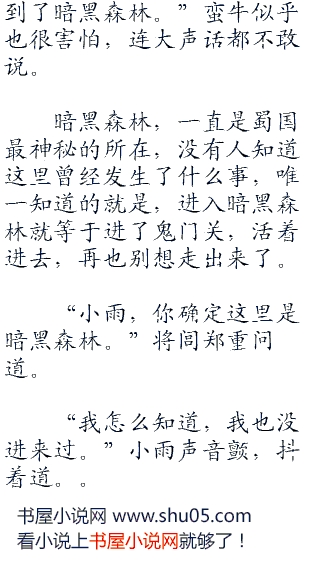 到了暗黑森林。”蛮牛似乎
也很害怕，连大声话都不敢
说。
暗黑森林，一直是蜀国
最神秘的所在，没有人知道
这里曾经发生了什么事，唯
一知道的就是，进入暗黑森
林就等于进了鬼门关，活着
进去，再也别想走出来了。
“小雨，你确定这里是
暗黑森林。”将闾郑重问
道。
“我怎么知道，我也没
进来过。”小雨声音颤，抖
着道。。
书屋小说网 www.shu05.com
看小说上书屋小说网就够了！